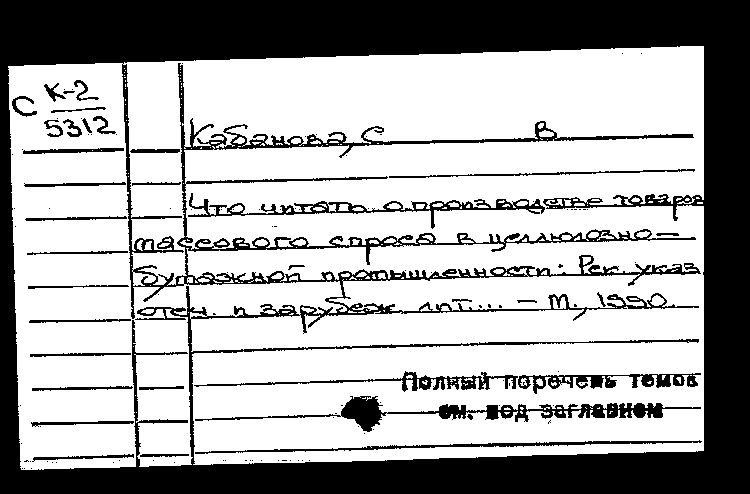 С К-2
5312
Кабанова, С В
Что читать о производстве товаров
массового спроса в целлюлозно-
бумажной промышленности: Рек. указ.
отеч. и зарубеж. лит.... – М., 1990.
Полный перечень томов
см. под заглавием